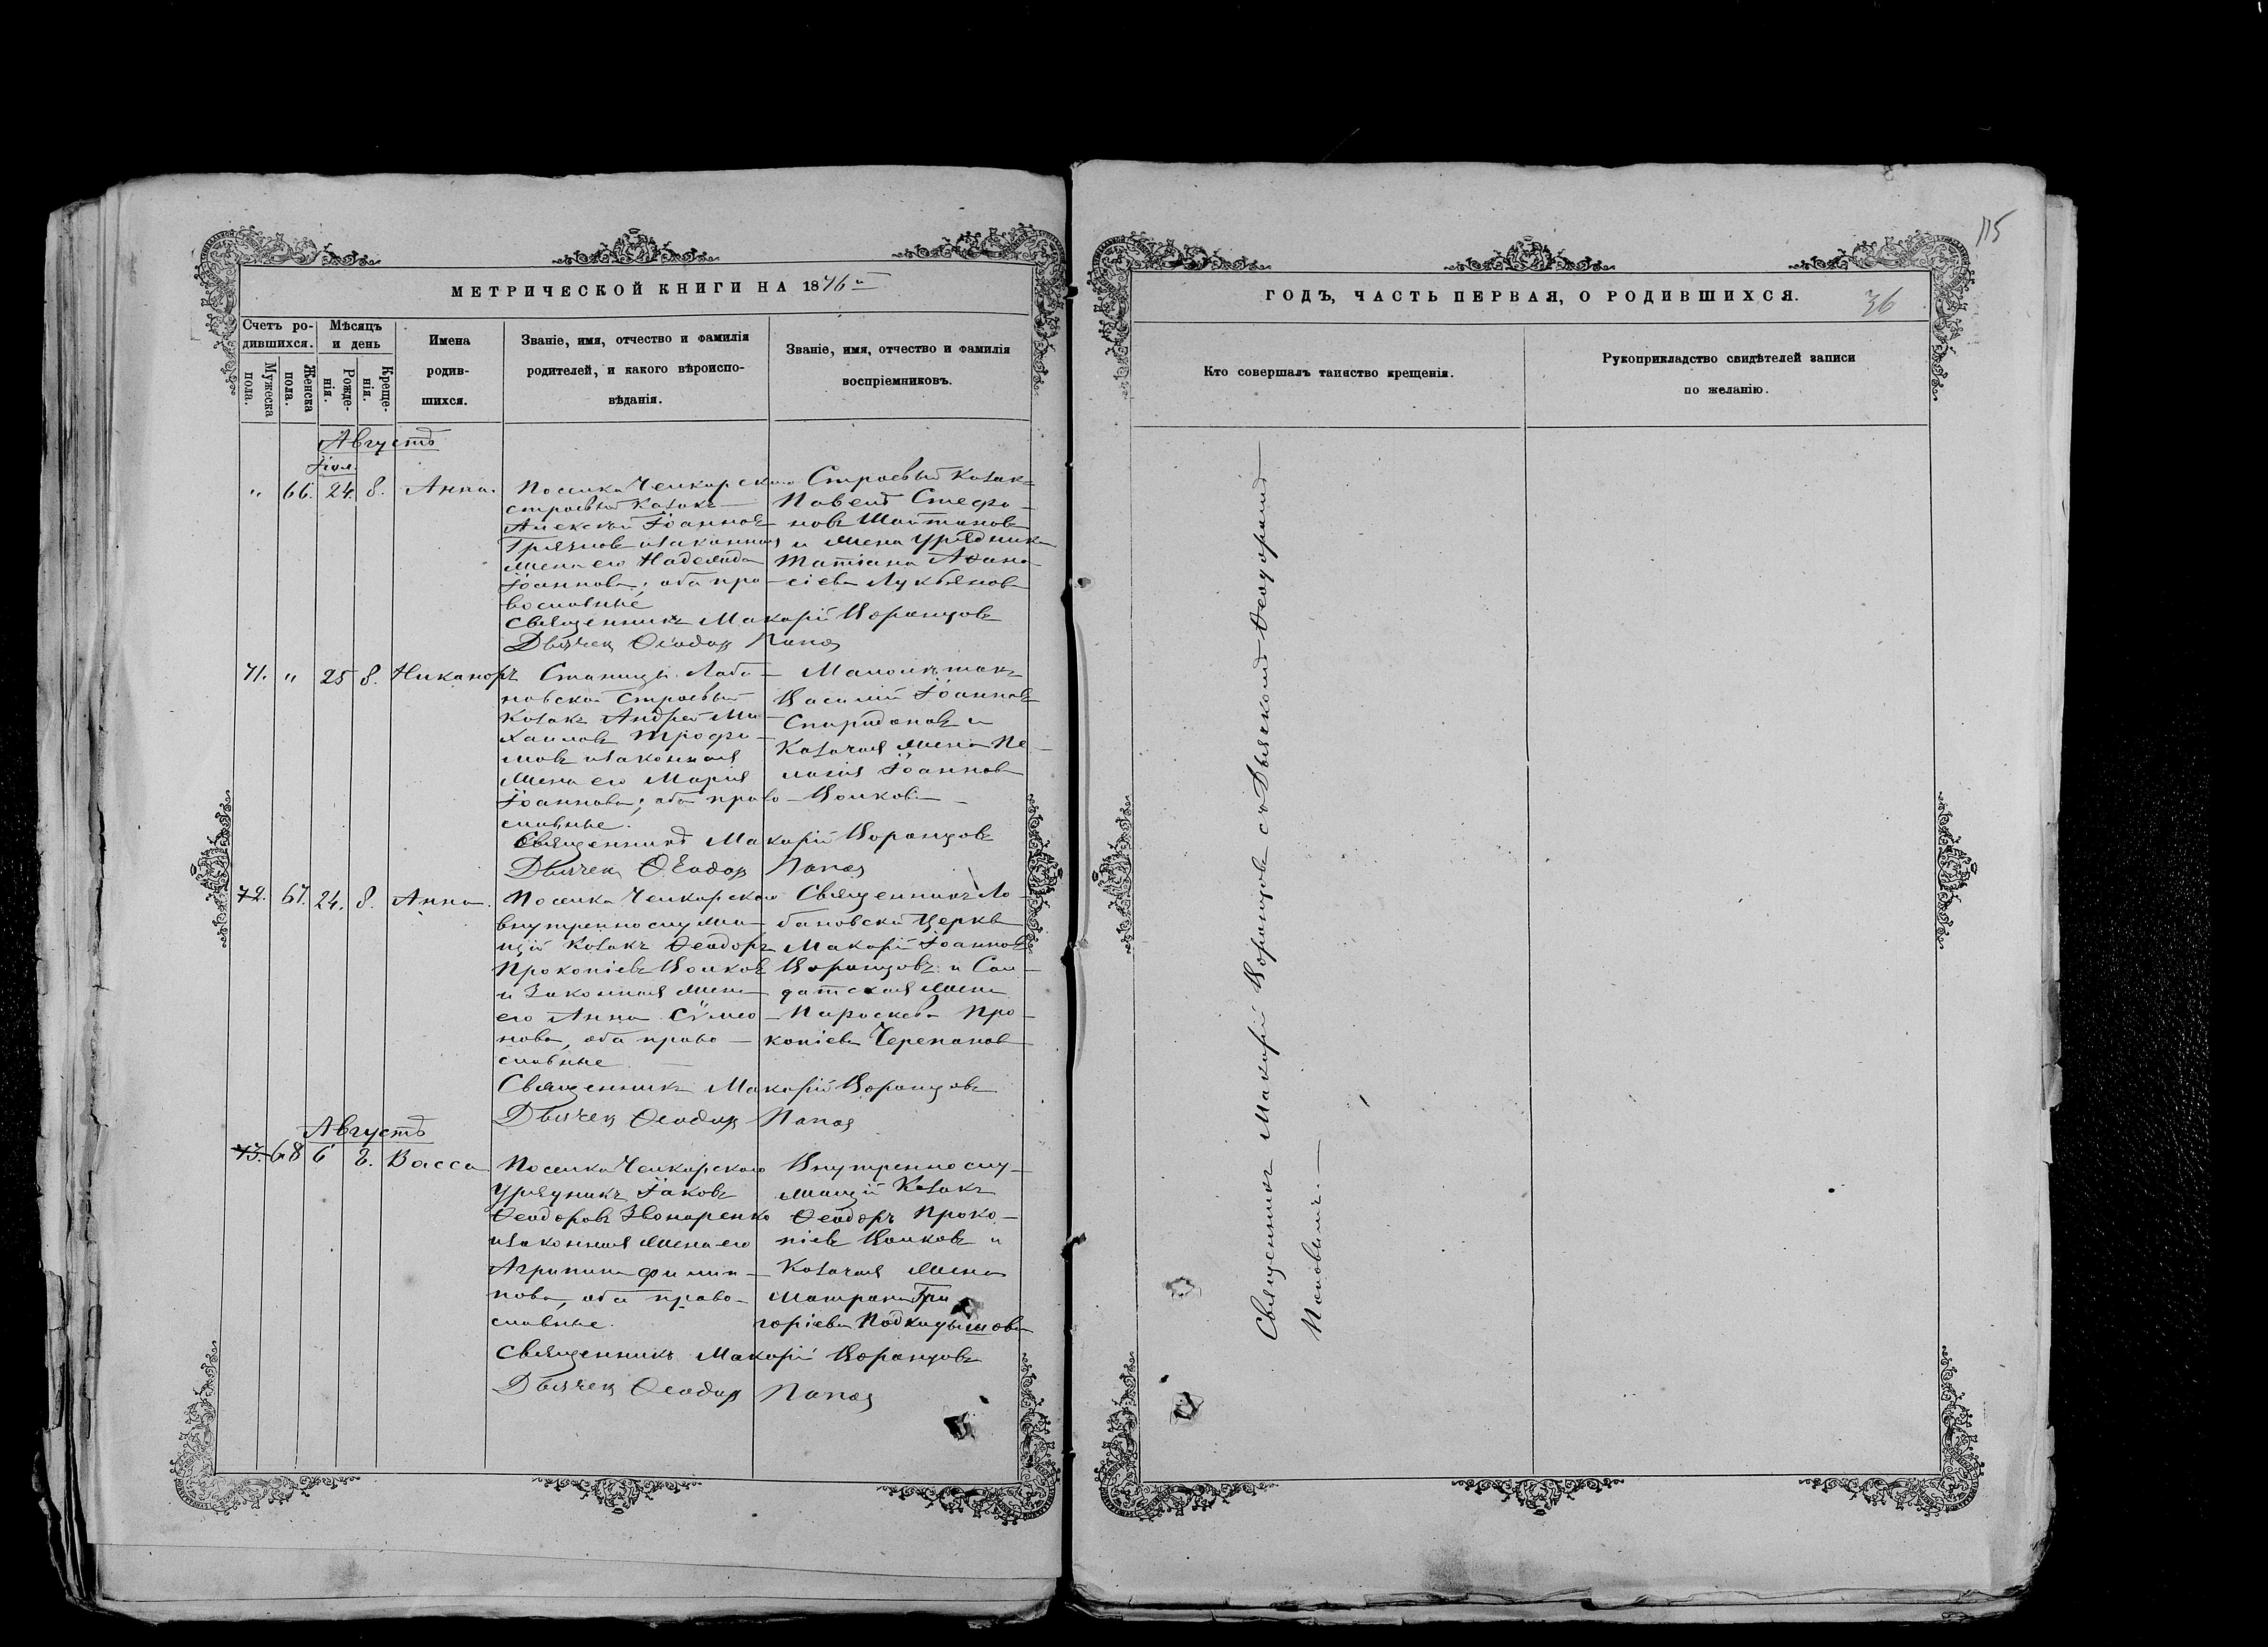 МЕТРИЧЕСКОЙ КНИГИ НА 1876й
Счетъ ро-
дившихся.
Мужеска
пола.
Женска
пола.
Мѣсяцъ
и день
Рожде-
нія.
Креще-
нія.
Имена
родив-
шихся.
Званіе, имя, отчество и фамилія
родителей, и какого вѣроиспо-
вѣданія.
Званіе, имя, отчество и фамилія
воспріемниковъ.
Августъ
Іюл.
" 66. 24. 8. Анна.
Поселка Челкарскаго
строевый Козакъ
Алексѣй Іоанновъ
Грязновъ и законная
жена его Надежда
Іоаннова; оба пра-
вославные
Строевый Козакъ
Павелъ Стефа-
новъ Шайтановъ
и жена урядника
Татіана Афана-
сіева Лукьянова
Священникъ Макарій Воронцовъ
Дьячекъ Ѳеодоръ Попов
71. " 25 8. Никаноръ
Станицы Лоба-
новской строевый
Козакъ Андрей Ми-
хаиловъ Трофи-
мовъ и законная
жена его Марія
Іоаннова; оба право-
славные.
Малолѣтокъ
Василій Іоанновъ
Спиридоновъ и
Козачья жена Пе-
лагія Іоаннова
Волкова
Священникъ Макарій Воронцовъ
Дьячекъ Ѳеодоръ Попов
72. 67. 24. 8. Анна.
Поселка Челкарскаго
внутреннослужа-
щій Козакъ Ѳеодоръ
Прокопіевъ Волковъ
и Законная жена
его Анна Сѵмео-
нова, оба право-
славные
Священникъ Ло-
бановской Церкви
Макарій Іоанновъ
Воронцовъ и Сол-
датская жена
Параскева Про-
копіева Черепанова
Священникъ Макарій Воронцовъ
Дьячекъ Ѳеодоръ Попов
Августъ
73. 68 6 8. Васса
Поселка Челкарскаго
урядникъ Іаковъ
Ѳеодоровъ Звонаренко
и законная жена его
Агрипина Филип-
пова, оба право-
славные.
Внутреннослу-
жащій Козакъ
Ѳеодоръ Проко-
піевъ Волковъ и
Козачья жена
Матрона Гри
горіева Подкидышова
Священникъ Макарій Воронцовъ
Дьячекъ Ѳеодоръ Попов
ГОДЪ, ЧАСТЬ ПЕРВАЯ, О РОДИВШИХСЯ.
36
115
Кто совершалъ таинство крещенія.
Рукоприкладство свидѣтелей записи
по желанію.
Священникъ Макарій Воронцовъ съ Дьячкомъ Ѳеодоромъ
Поповымъ.